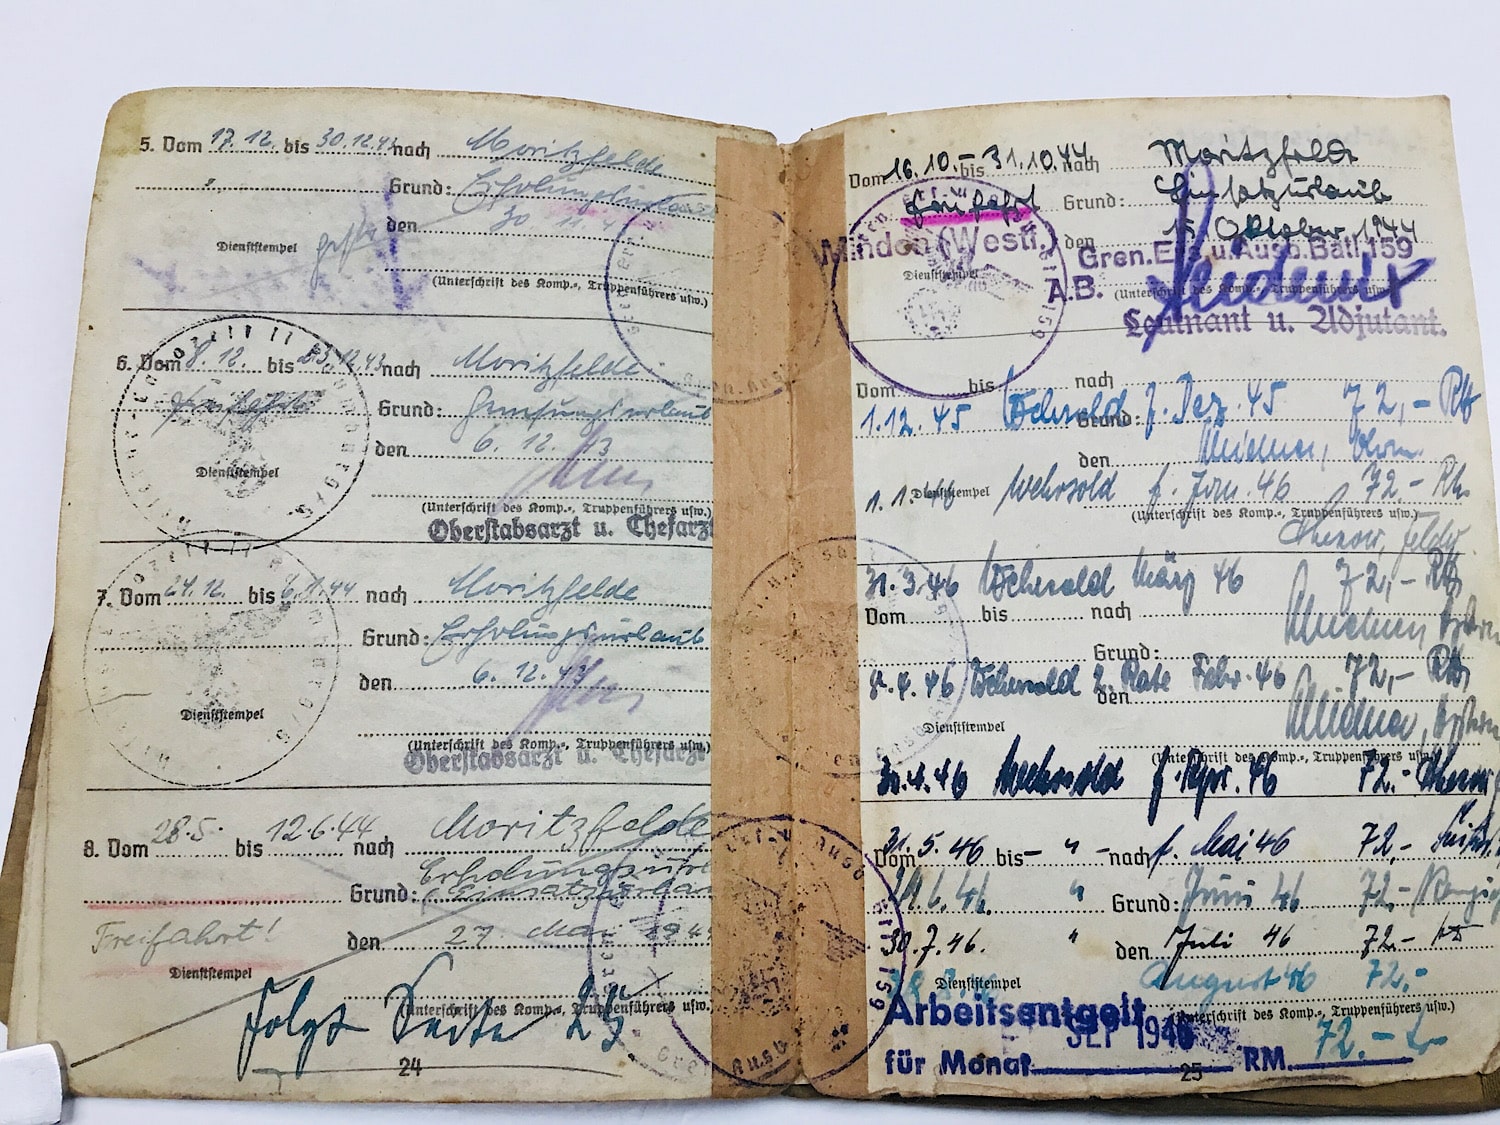 5. Vom 17.12. bis 30.12.42 nach Moritzfelde
Grund: Erholungsurlaub
den 30. 11. 4
Dienststempel
(Unterschrift des Komp.-, Truppenführers usw.)
6. Vom 8.12. bis 23.12.43 nach Moritzfelde
Grund: Genesungsurlaub
den 6. 12. 43
Dienststempel
(Unterschrift des Komp.-, Truppenführers usw.)
Oberstabsarzt u. Chefarzt
7. Vom 24.12. bis 6.1.44 nach Moritzfelde
Grund: Erholungsurlaub
den 6. 12. 43
Dienststempel
(Unterschrift des Komp.-, Truppenführers usw.)
Oberstabsarzt u. Chefarzt
8. Vom 28.5. bis 12.6.44 nach Moritzfelde
Erholungsurl
Grund: Einsatzurlaub
Freifahrt!
den 27 Mai 1944
Dienststempel
(Unterschrift des Komp.-, Truppenführers usw.)
Folgt Seite 25
24
Vom 16.10. - bis 31.10.44 nach Moritzfelde
Freifahrt Grund: Einsatzurlaub
den 15. Oktober 1944
Minden (Westf.) Gren.Ers.u.Ausb.Batl.159
Dienststempel
A.B. (Unterschrift des Komp.-, Truppenführers usw.)
Leutnant u. Adjutant.
Vom bis nach
1.12.45 Wehrsold f. Dez. 45 72,- RM
Grund:
den
1.1.46 Wehrsold f. Jan. 46 72.- RM
Dienststempel
(Unterschrift des Komp.-, Truppenführers usw.)
31.3.46 Wehrsold März 46 72,- RM
Vom bis nach
Grund:
8.4.46 Wehrsold 2. Rate Febr. 46 72,- RM
den
Dienststempel
(Unterschrift des Komp.-, Truppenführers usw.)
30.4.46 Wehrsold f. Apr. 46 72.-
Vom 31.5.46 bis - " - nach f. Mai 46 72.-
6.46. " Grund: Juni 46 72.-
30.7.46. " den Juli 46 72.-
Dienststempel August 46 72.-
(Unterschrift des Komp.-, Truppenführers usw.)
Arbeitsentgelt
für Monat SEP 1946 RM. 72.-
25